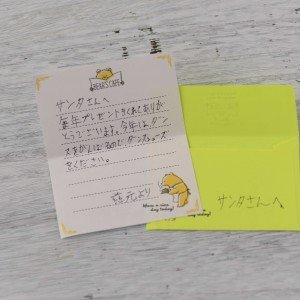 BEAR'S CAFE
サンタさんへ
毎年プレゼントをくれてありが
とうございます。今年は、ダン
スをがんばるのでダンスシューズ
をください。
より
Have a nice
day today!
サンタさんへ